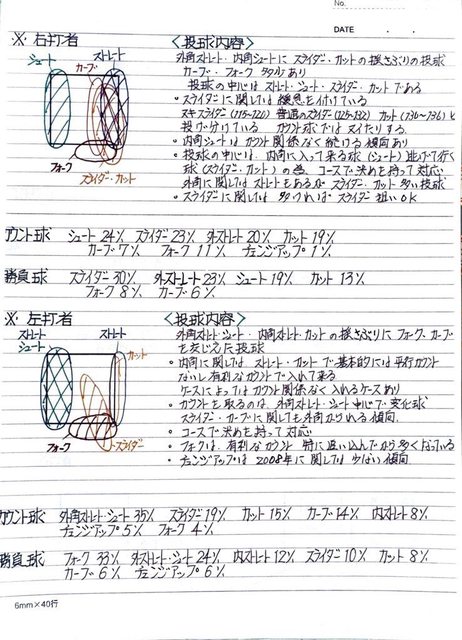 No.
DATE . .
※ 右打者 <投球内容>
シュート カーブ ストレート
フォーク スライダー・カット
外角ストレート・内角シュートに スライダー・カットの揺さぶりの投球
カーブ・フォーク 多少あり
投球の中心は ストレート・シュート・スライダー・カットである
・スライダーに関しては 緩急を付けている
スライダー(115~120) 普通のスライダー(125~132) カット(134~136)と
投げ分けている カウント球では 入れたりする
・内角シュートは カウント関係なく続ける傾向あり
・投球の中心は、内角に入って来る球(シュート) 逃げて行く
球(スライダー・カット)の為、コースで決めを持って対応
外角に関しては ストレートもあるが スライダー・カット多い投球
・スライダーに関して 多ければ スライダー狙いOK
カウント球 シュート24% スライダー23% 外ストレート20% カット19%
カーブ7% フォーク11% チェンジアップ1%
勝負球 スライダー30% 外ストレート23% シュート19% カット13%
フォーク8% カーブ6%
※ 左打者 <投球内容>
ストレート シュート ストレート カット
フォーク スライダー
外角ストレート・シュート・内角ストレート・カットの揺さぶりに フォーク・カーブ
を交じえた投球
・内角に関しては ストレート・カットで基本的には平行カウント
ないし有利なカウントで入れて来る
ケースによってはカウント関係なく入れるケースあり
・カウントを取るのは 外角ストレート・シュート中心で変化球
スライダー・カーブに関しても外角からが傾向
・コースで決めを持って対応
・フォークは、有利なカウント 特に追い込んでから多くなっている
・チェンジアップは 2008年に関しては 少ない傾向
カウント球 外角ストレート・シュート35% スライダー19% カット15% カーブ14% 内ストレート8%
チェンジアップ5% フォーク4%
勝負球 フォーク33% 外ストレート・シュート24% 内ストレート12% スライダー10% カット8%
カーブ6% チェンジアップ6%
6mm×40行